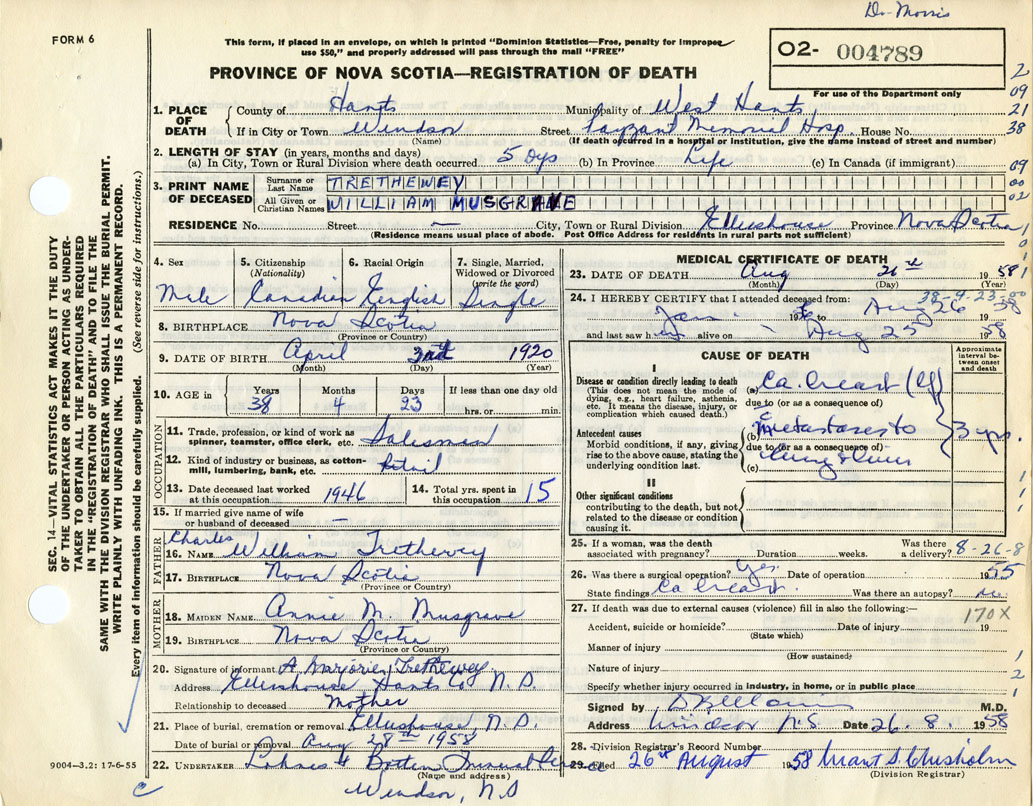 Dr Morris
FORM 6
This form, if placed in an envelope, on which is printed "Dominion Statistics—Free, penalty for improper
use $50," and properly addressed will pass through the mail "FREE"
O2- 004789
For use of the Department only
PROVINCE OF NOVA SCOTIA—REGISTRATION OF DEATH
2
09
21
38
09
00
02
1. PLACE OF DEATH
County of Hants Municipality of West Hants
If in City or Town Windsor Street Payzant Memorial Hosp. House No.
(Name) (If death occurred in a hospital or institution, give the name instead of street and number)
2. LENGTH OF STAY (in years, months and days)
(a) In City, Town or Rural Division where death occurred 5 Dys (b) In Province Life (c) In Canada (if immigrant)
3. PRINT NAME OF DECEASED
Surname or Last Name TRETHEWEY
All Given or Christian Names WILLIAM MUSGRAVE
RESIDENCE No. Street — City, Town or Rural Division Ellershouse Province Nova Scotia
(Residence means usual place of abode. Post Office Address for residents in rural parts not sufficient)
4. Sex 5. Citizenship (Nationality) 6. Racial Origin 7. Single, Married, Widowed or Divorced (write the word)
Male Canadian English Single
8. BIRTHPLACE Nova Scotia
(Province or Country)
9. DATE OF BIRTH April 3rd 1920
(Month) (Day) (Year)
10. AGE in Years 38 Months 4 Days 23 If less than one day old
hrs. or min.
OCCUPATION
11. Trade, profession, or kind of work as
spinner, teamster, office clerk, etc. Salesman
12. Kind of industry or business, as cotton-
mill, lumbering, bank, etc. Retail
13. Date deceased last worked
at this occupation 1946
14. Total yrs. spent in
this occupation 15
15. If married give name of wife
or husband of deceased —
FATHER
16. NAME Charles William Trethewey
17. BIRTHPLACE Nova Scotia
(Province or Country)
MOTHER
18. MAIDEN NAME Annie M. Musgrave
19. BIRTHPLACE Nova Scotia
(Province or Country)
20. Signature of informant A Marjorie Trethewey
Address Ellershouse Hants Co N.S.
Relationship to deceased Mother
21. Place of burial, cremation or removal Ellershouse N.S.
Date of burial or removal Aug 28th 1958
22. UNDERTAKER Funeral Service
(Name and address)
Windsor, N.S
MEDICAL CERTIFICATE OF DEATH
23. DATE OF DEATH Aug 26th 1958
(Month) (Day) (Year)
38-4-23-00
24. I HEREBY CERTIFY that I attended deceased from:
Jan. 19 to Aug 26 1958
and last saw him alive on Aug 25 1958
CAUSE OF DEATH
Approximate interval between onset and death
I
Disease or condition directly leading to death
(This does not mean the mode of
dying, e.g., heart failure, asthenia,
etc. It means the disease, injury, or
complication which caused death.)
(a) Ca. Breast (Lf)
due to (or as a consequence of)
Antecedent causes
Morbid conditions, if any, giving
rise to the above cause, stating the
underlying condition last.
(b) c metastases to
due to (or as a consequence of)
(c) lung & liver
3 yrs.
II
Other significant conditions
contributing to the death, but not
related to the disease or condition
causing it.
25. If a woman, was the death
associated with pregnancy? Duration weeks. Was there a delivery? 8-26-8
26. Was there a surgical operation? Yes. Date of operation 1955
State findings Ca Breast. Was there an autopsy? no.
27. If death was due to external causes (violence) fill in also the following:—
170X
Accident, suicide or homicide? Date of injury 19
(State which)
Manner of injury
(How sustained)
Nature of injury
Specify whether injury occurred in industry, in home, or in public place
Signed by M.D.
Address Windsor N.S. Date 26.8.1958
28. Division Registrar's Record Number
29. Filed 26th August 1958 Grant S. Chisholm
(Division Registrar)
SEC. 14—VITAL STATISTICS ACT MAKES IT THE DUTY
OF THE UNDERTAKER OR PERSON ACTING AS UNDER-
TAKER TO OBTAIN ALL THE PARTICULARS REQUIRED
IN THE "REGISTRATION OF DEATH" AND TO FILE THE
SAME WITH THE DIVISION REGISTRAR WHO SHALL ISSUE THE BURIAL PERMIT.
WRITE PLAINLY WITH UNFADING INK. THIS IS A PERMANENT RECORD.
Every item of information should be carefully supplied. (See reverse side for instructions.)
9004—3.2: 17-6-55